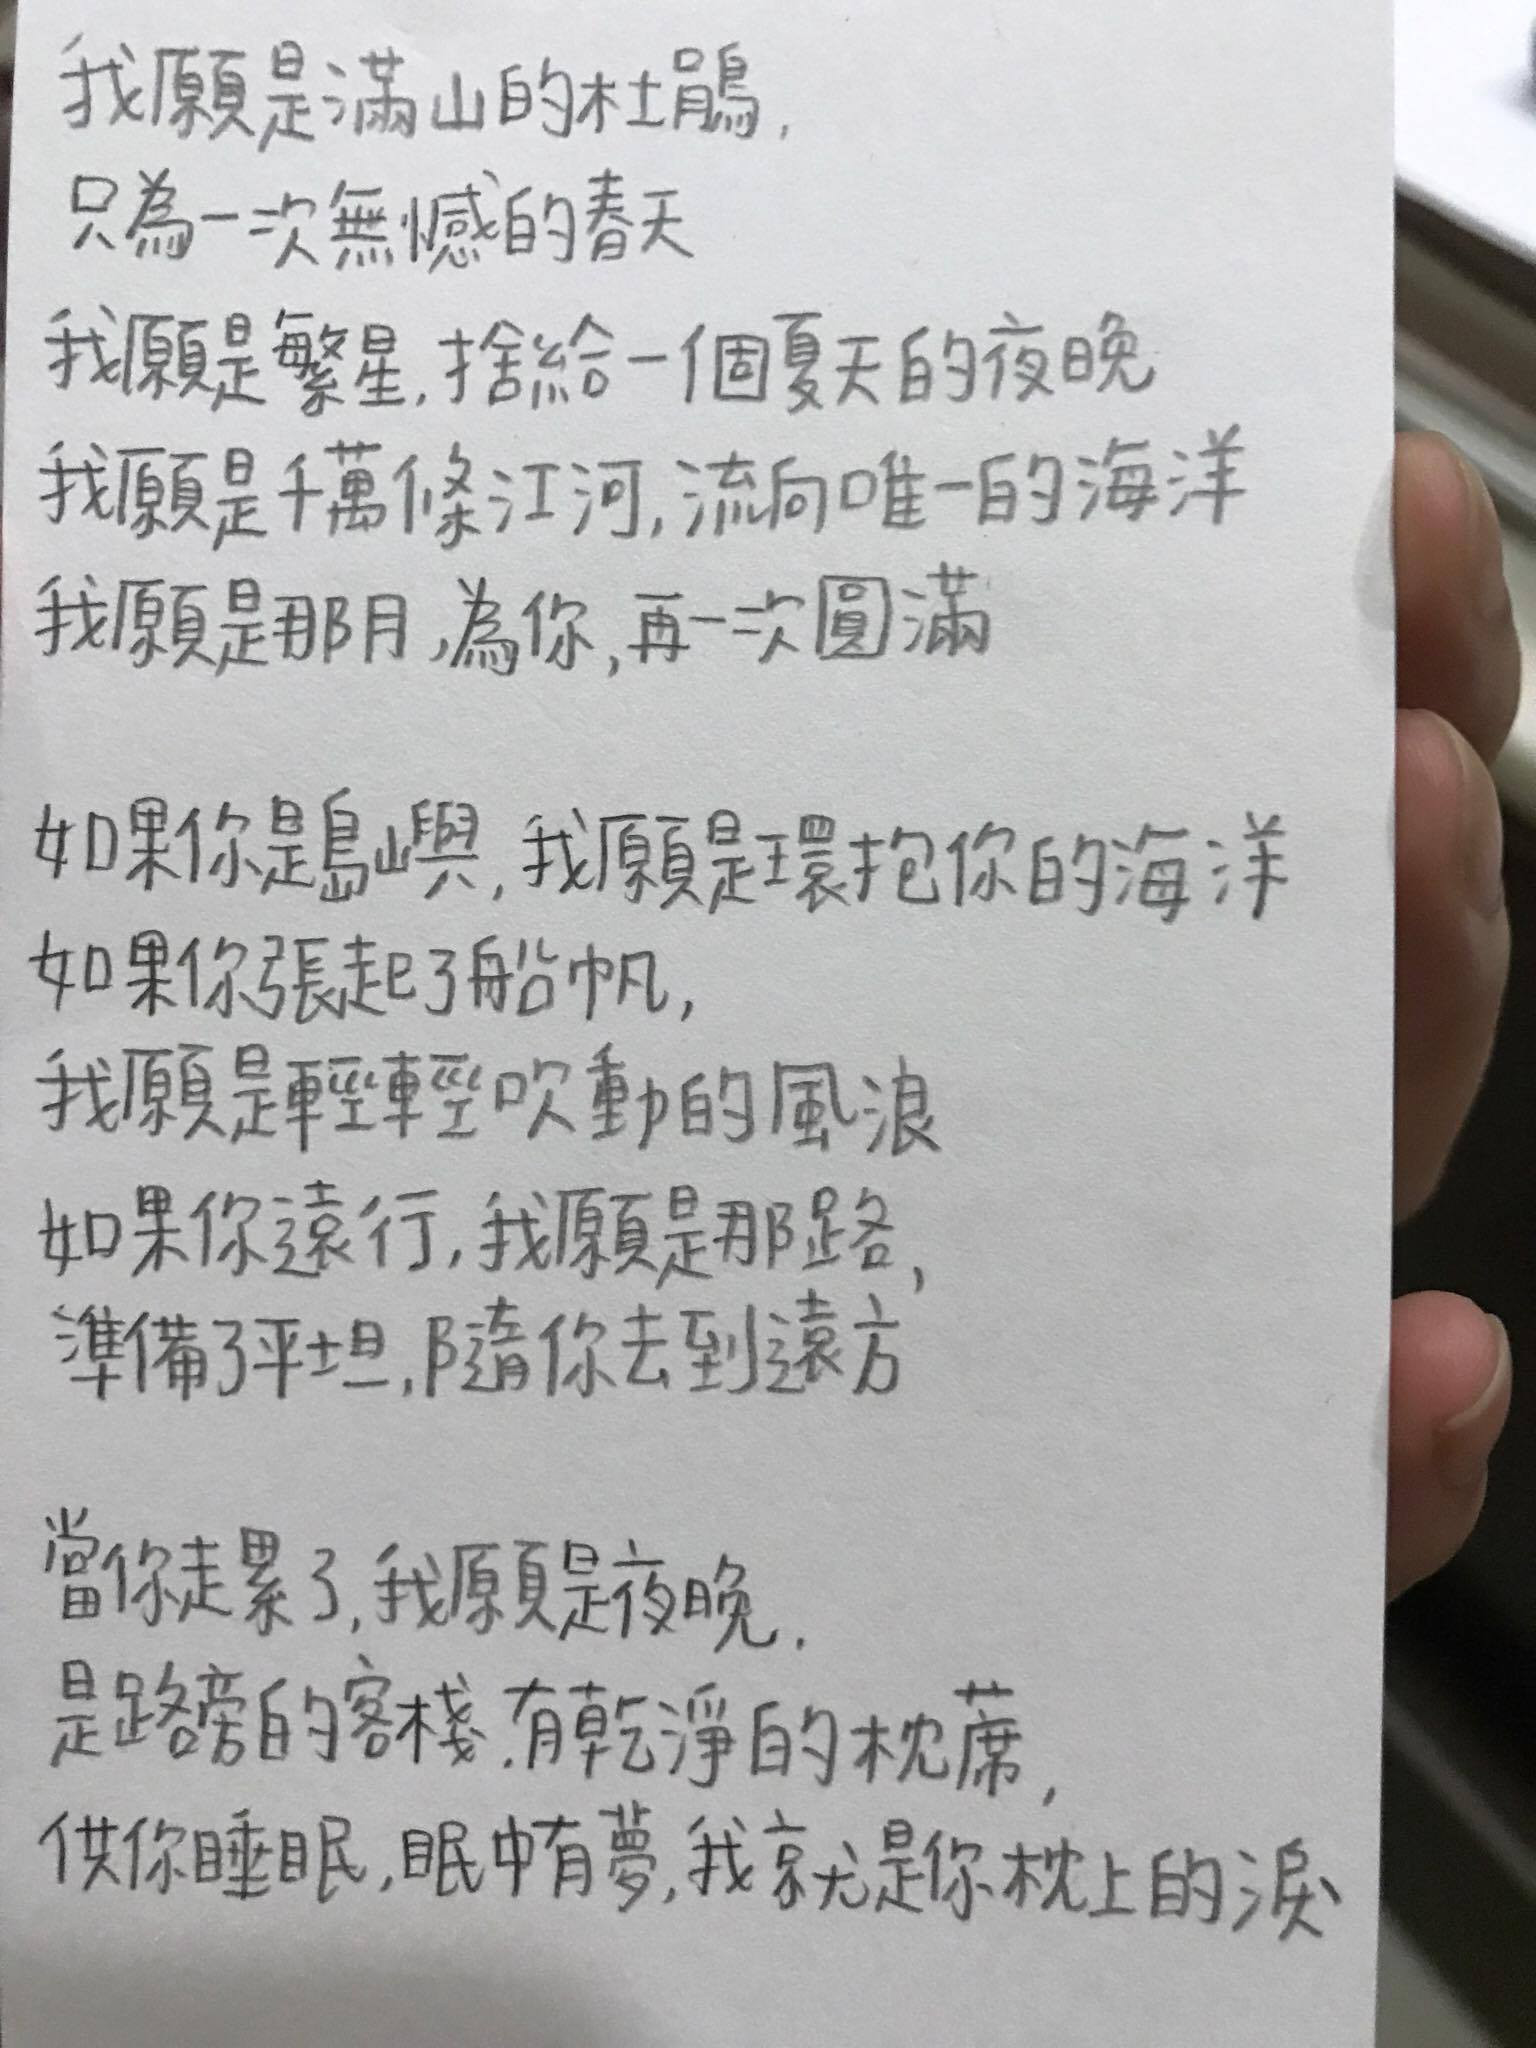 我願是滿山的杜鵑,
只為一次無憾的春天
我願是繁星,捨給一個夏天的夜晚
我願是千萬條江河,流向唯一的海洋
我願是那月,為你,再一次圓滿
如果你是島嶼,我願是環抱你的海洋
如果你張起了船帆,
我願是輕輕吹動的風浪
如果你遠行,我願是那路,
準備了平坦,隨你去到遠方
當你走累了,我願是夜晚,
是路旁的客棧,有乾淨的枕蓆,
供你睡眠,眠中有夢,我就是你枕上的淚